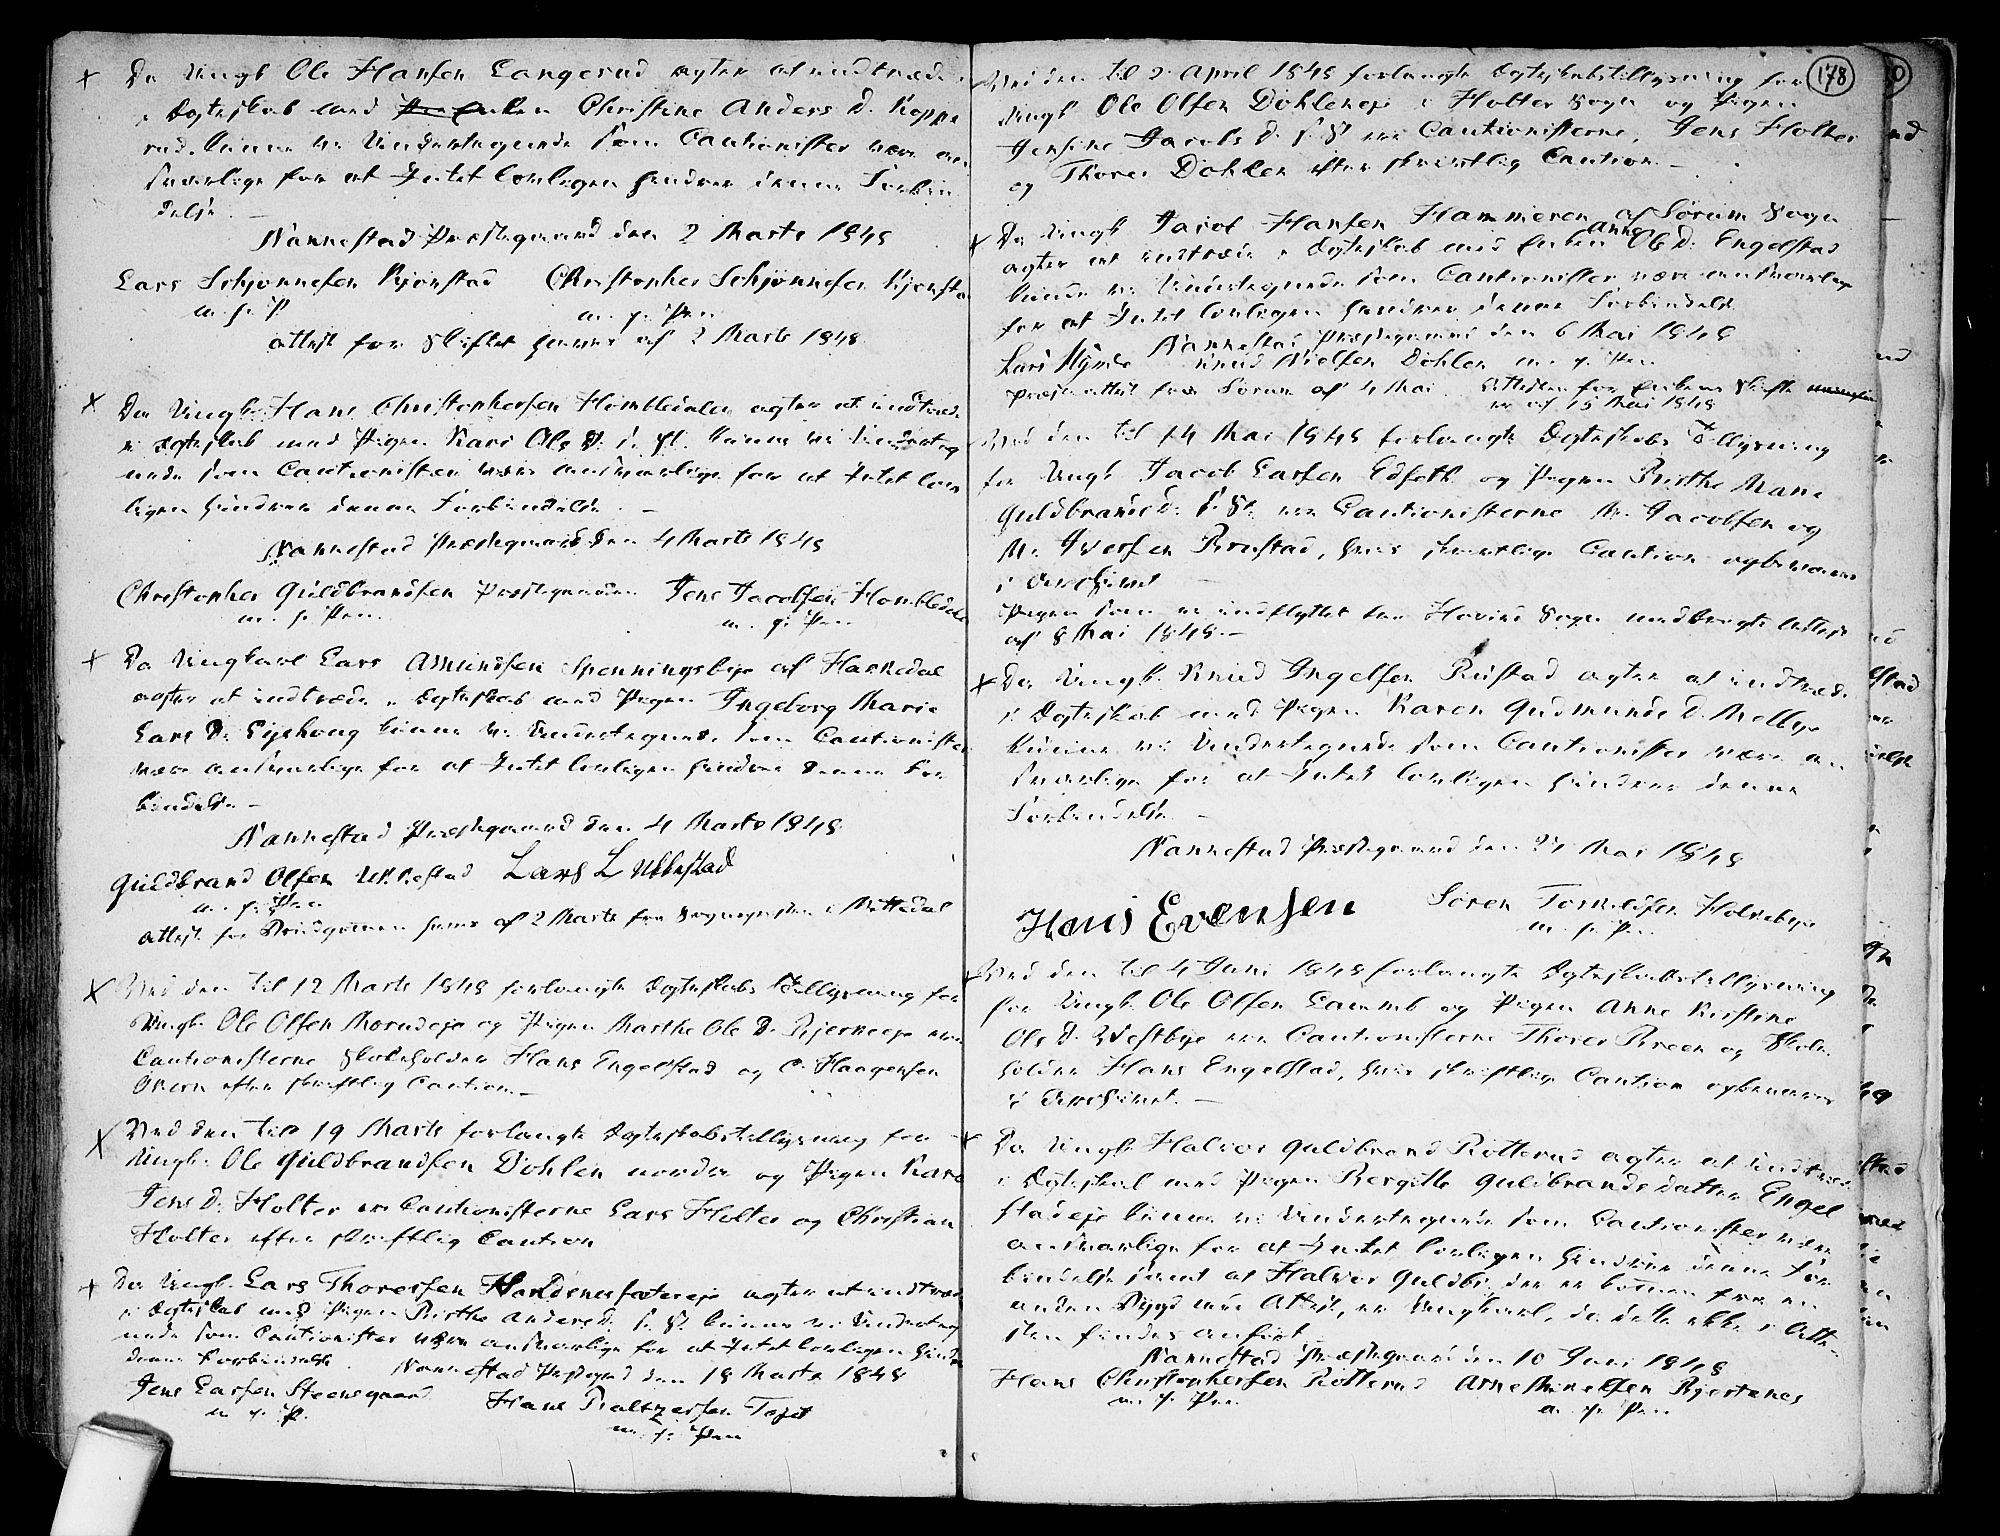 Da Ungk Ole Hansen Langerud agter at indtræde
i Ægteskab med Enken Christine Anders D. Koppe
rud, kunne vi Undertegnede som Cautionister være an
svarlige for at Intet lovligen hindrer denne Forbin
delse. –
Nannestad Præstegaard den 2 Marts 1848
Lars Schjønnesen Kjønstad Christopher Schjønnesen Kjønsta
m. p. P. m. p. Pen
Attest for Skiftet haves af 2 Marts 1848
Da Ungk. Hans Christophersen Hombledalen agter at indtræde
i Ægteskab med Pigen Kari Ols D. i. St. kunne vi Underteg
nede som Cautionister være ansvarlige for at Intet lov
ligen hindrer denne Forbindelse. –
Nannestad Præstegaard den 4 Marts 1848
Christopher Guldbrandsen Præstegaarden Jens Jacobsen Hombledale
m. p. Pen. m. p. Pen
Da Ungkarl Lars Amundsen Spenningsbye af Hakkedal
agter at indtræde i Ægteskab med Pigen Ingeborg Marie
Lars D. Eijehoug kunne vi Undertegnede som Cautionister
være ansvarlige for at Intet lovligen hindrer denne For
bindelse –
Nannestad Præstegaard den 4 Marts 1848
Guldbrand Olsen Ukkestad Lars L Ukkestad
m. p. Pen
Attest for Brudgommen haves af 2 Marts fra Sognepræsten i Nittedal
Ved den til 12 Marts 1848 forlangte Ægteskabs Tillysning for
Ungk. Ole Olsen Moreneje og Pigen Marthe Ole D. Bjerkeeje ere
Cautionisterne Skoleholder Hans Engelstad og C. Haagensen
Økern efter skriftlig Caution. –
Ved den til 19 Marts forlangte Ægteskabstillysning for
Ungk. Ole Guldbrandsen Døhlen nordre og Pigen Kare
Jens D. Holter ere Cautionisterne Lars Holter og Christian
Holter efter skriftlig Caution
Da Ungk. Lars Thoresen agter at indtræde
i Ægteskab med Pigen Birthe Anders D. i. St. kunne vi Underteg
nede som Cautionister være ansvarlige for at Intet lovligen hindre
denne Forbindelse. Nannestad Præstegrd den 18 Marts 1848
Jens Larsen Steensgaard Hans Baltzersen Tøjet
m. p. P. m. p. Pen
178
Ved den til 2 April 1848 forlangte Ægteskabstillysning for
Ungk Ole Olsen Döhleneje i Holter Sogn og Pigen
Jensine Jacobs D. i. St ere Cautionisterne, Jens Holter
og Thorer Döhlen efter skriftlig Caution. –
Da Ungk Jacob Hansen Hammeren af Sørum Sogn
agter at indtræde i Ægteskab med Enken Anne Ole D. Engelstad
kunne vi Undertegnede som Cautionister være ansvarlige
for at Intet lovligen hindrer denne Forbindelse
Nannestad Præstegaard den 6 Mai 1848
Lars Knud Nielsen Döhlen m. p. Pen
Præsteattest fra Sørum af 4 Mai. Attesten for Enkens Skifte
er af 15 Mai 1848
Ved den til 14 Mai 1848 forlangte Ægteskabs Tillysning
for Ungk Jacob Larsen Edseth og Pigen Birthe Marie
Guldbrands D. i. St. ere Cautionisterne N. Jacobsen og
N. Iversen Brustad, hvis skriftlige Caution opbevares
i Archivet –
Pigen som er indflyttet fra Hovind Sogn medbragte Attest
af 8 Mai 1848. –
Da Ungk. Knud Ingelsen Rustad agter at indtræde
i Ægteskab med Pigen Karen Gudmunds D. Mellbye
kunne vi Undertegnede som Cautionister være an
svarlige for at Intet lovligen hindrer denne
Forbindelse –
Nannestad Præstegaard den 27 Mai 1848
Hans Evensen Søren Holkebye
m. p. Pen.
Ved den til 4 Juni 1848 forlangte Ægteskabstillysning
for Ungk. Ole Olsen Lammb og Pigen Anne Kirstine
Ole D. Westbye ere Cautionisterne Thorer Breen og Skole
holder Hans Engelstad, hvis skriftlige Caution opbevares
i Archivet. –
Da Ungk. Halvor Guldbrand Rotterud agter at indtræde
i Ægteskab med Pigen Bergitte Guldbrands datter Engel
stadeje kunne vi Undertegnede som Cautionister være
ansvarlige for at Intet lovligen hindrer denne For
bindelse samt at Halvor Guldbr. der er kommen fra en
anden Bygd med Attest, er Ungkarl, da dette ikke i Atte
sten findes anført
Nannestad Præstegaard den 10 Juni 1848
Hans Christophersen Rotterud Arne Mikelsen Bjertenes
m. p. Pen m. p. Pen